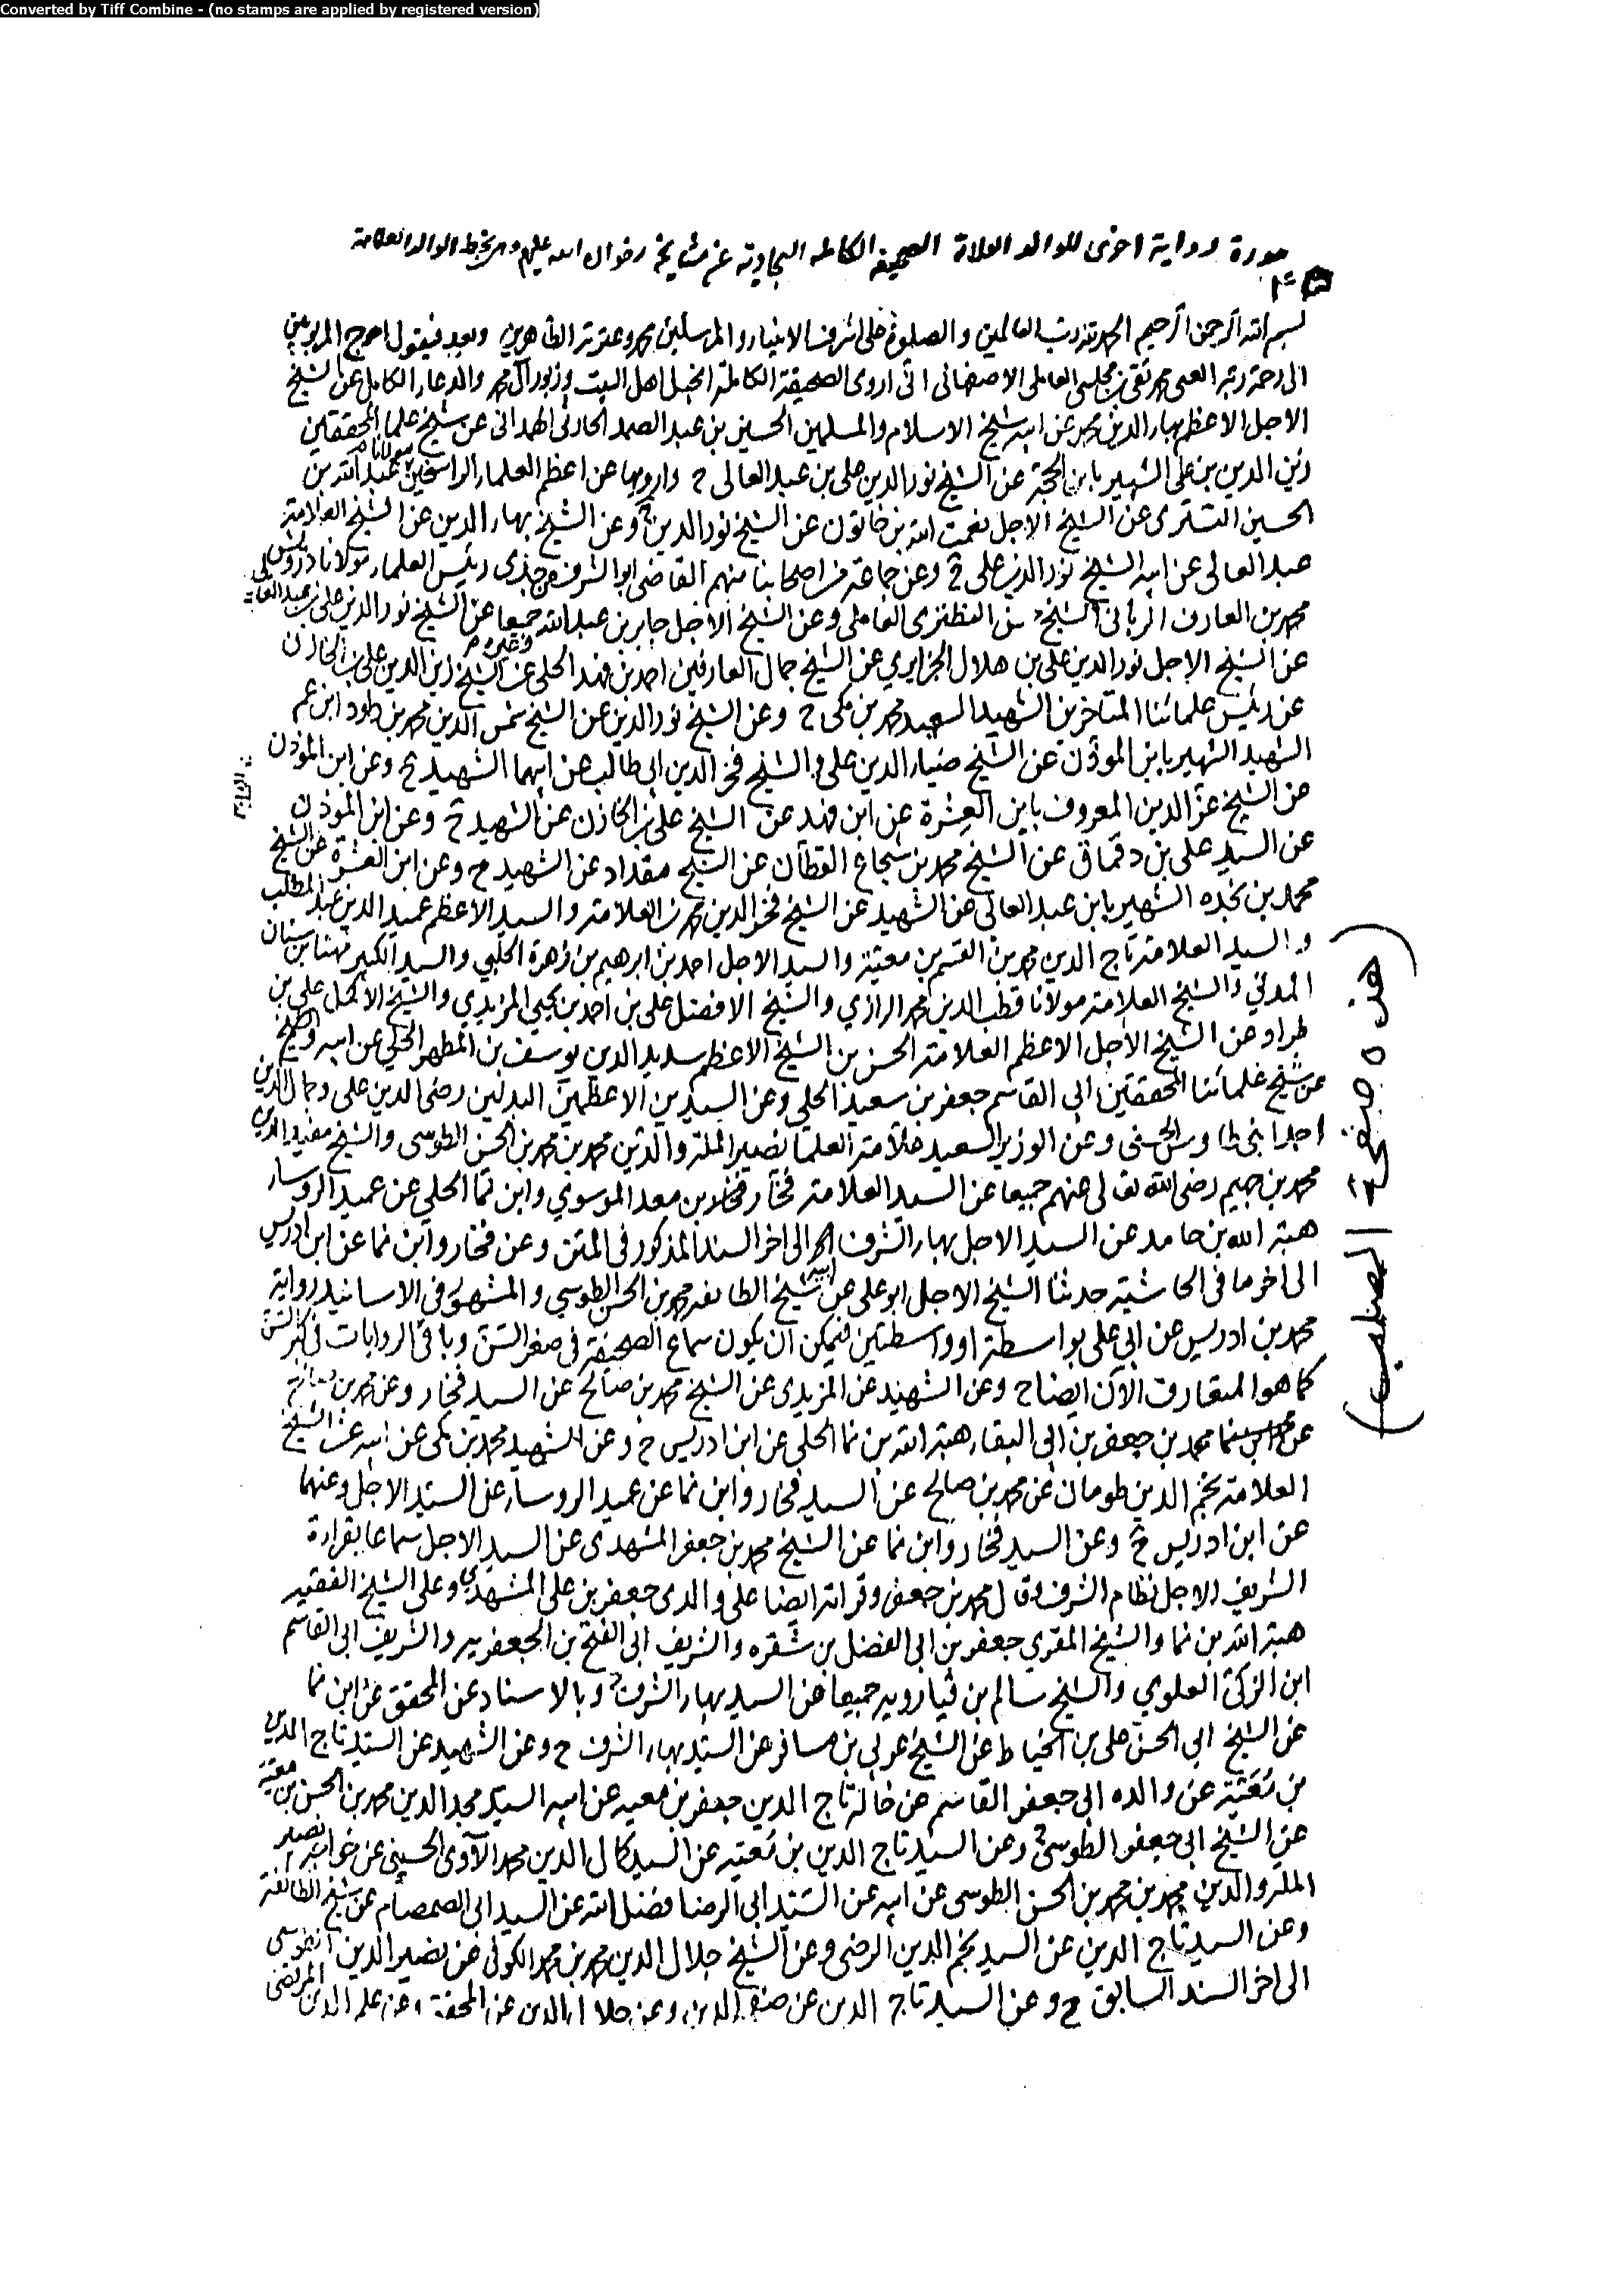 Converted by Tiff Combine - (no stamps are applied by registered version)
صورة رواية اخرى للوالد العلامة الصحيفه الكامله السجادية عن مشايخه رضوان الله عليهم وهو بخط الوالد العلامة
بسم الله الرحمن الرحيم الحمد لله رب العالمين و الصلوة على اشرف الانبياء و المرسلين محمد وعترته الطاهرين وبعد فيقول احوج المربوبين
الى رحمة ربه الغنى محمد تقى بن مجلسى العاملى الاصفهانى انى اروى الصحيفة الكاملة انجيل اهل البيت وزبور آل محمد والدعاء الكامل عن الشيخ
الاجل الاعظم بهاء الدين محمد عن ابيه شيخ الاسلام والمسلمين الحسين بن عبد الصمد الحارثى الهمدانى عن شيخ علماء المحققين
زين الدين بن على الشهير بابن الحجة عن الشيخ نور الدين على بن عبد العالى ح وارويها عن اعظم العلماء الراسخين مولانا عبد الله بن
الحسين التسترى عن الشيخ الاجل نعمت الله بن خاتون عن الشيخ نور الدين ح وعن الشيخ بهاء الدين عن الشيخ العلامة
عبد العالى عن ابيه الشيخ نور الدين على ح وعن جماعة من اصحابنا منهم القاضى ابو الشرف وعن جدى رئيس العلماء مولانا درويش
محمد بن العارف الربانى الشيخ حسن النطنزى العاملى وعن الشيخ الاجل جابر بن عبد الله جميعا عن الشيخ نور الدين على بن عبد العالى
عن الشيخ الاجل نور الدين على بن هلال الجزايري عن الشيخ جمال العارفين احمد بن فهد الحلى عن الشيخ زين الدين على بن الخازن
عن رئيس علمائنا المتاخرين الشهيد السعيد محمد بن مكى ح وعن الشيخ نور الدين عن الشيخ شمس الدين محمد بن داود ابن عم
الشهيد الشهير بابن الموذن عن الشيخ ضياء الدين على والشيخ فخر الدين ابى طالب عن ابيهما الشهيد ح وعن ابن الموذن
عن الشيخ عز الدين المعروف بابن العشرة عن ابن فهد عن الشيخ على بن الخازن عن الشهيد ح وعن ابن الموذن
عن السيد على بن دقماق عن الشيخ محمد بن شجاع القطان عن الشيخ مقداد عن الشهيد ح وعن ابن العشرة عن الشيخ
محمد بن نجده الشهير بابن عبد العالى عن الشهيد عن الشيخ فخر الدين محمد بن العلامة والسيد الاعظم عميد الدين عبد المطلب
والسيد العلامة تاج الدين محمد بن القسم بن معية والسيد الاجل احمد بن ابرهيم بن زهرة الحلبي والسيد الكبير مهنا بن سنان
المدني والشيخ العلامة مولانا قطب الدين محمد الرازي والشيخ الافضل على بن احمد بن يحيى المزيدي والشيخ الاكمل على بن
طراد عن الشيخ الاجل الاعظم العلامة الحسن بن الشيخ الاعظم سديد الدين يوسف بن المطهر الحلي عن ابيه وعن
عن شيخ علمائنا المحققين ابى القاسم جعفر بن سعيد الحلي وعن السيدين الاعظمين البدلين رضى الدين على وجمال الدين
احمد ابنى طاوس الحسنى وعن الوزير السعيد علامة العلما نصير الملة والدين محمد بن محمد بن الحسن الطوسى والشيخ مفيد الدين
محمد بن جهيم رضى الله تعالى عنهم جميعا عن السيد العلامة فخار بن معد الموسوي وابن نما الحلي عن عميد الروساء
هبة الله بن حامد عن السيد الاجل بهاء الشرف الى اخر السند المذكور فى المتن وعن فخار وابن نما عن ابن ادريس
الى اخر ما فى الحاشية حدثنا الشيخ الاجل ابو على عن ابيه شيخ الطائفه محمد بن الحسن الطوسي والمشهور فى الاسانيد رواية
محمد بن ادريس عن ابى على بواسطة او واسطتين فيمكن ان يكون سماع الصحيفة فى صغر السن وباقى الروايات فى كبر السن
كما هو المتعارف الآن ايضا ح وعن الشهيد عن المزيدى عن الشيخ محمد بن صالح عن السيد فخار وعن محمد بن
عن محمد بن جعفر بن ابى البقاء هبة الله بن نما الحلى عن ابن ادريس ح وعن الشهيد محمد بن مكى عن ابيه عن الشيخ
العلامة نجم الدين طومان عن محمد بن صالح عن السيد فخار وابن نما عن عميد الروساء عن السيد الاجل وعنهما
عن ابن ادريس ح وعن السيد فخار وابن نما عن الشيخ محمد بن جعفر المشهدى عن السيد الاجل سماعا بقراءة
الشريف الاجل نظام الشرف وقال محمد بن جعفر وقراته ايضا على والدى جعفر بن على المشهدي وعلى الشيخ الفقيه
هبة الله بن نما والشيخ المقرى جعفر بن ابى الفضل بن شقره والشريف ابى الفتح بن الجعفريه والشريف ابى القاسم
ابن الزكى العلوي والشيخ سالم بن قبارويه جميعا عن السيد بهاء الشرف وبالاسناد عن المحقق عن ابن نما
عن الشيخ ابى الحسن على بن الخياط عن الشيخ عربى بن مسافر عن السيد بهاء الشرف ح وعن الشهيد عن السيد تاج الدين
بن معية عن والده ابى جعفر القاسم عن خاله تاج الدين جعفر بن معيه عن ابيه السيد مجد الدين محمد بن الحسن بن معية
عن الشيخ ابى جعفر الطوسى وعن السيد تاج الدين بن معيه عن السيد كمال الدين محمد الآوى الحسينى عن خواجه نصير
الملة والدين محمد بن محمد بن الحسن الطوسى عن ابيه عن السيد ابى الرضا فضل الله عن السيد ابى الصمصام عن شيخ الطائفة
وعن السيد تاج الدين عن السيد نجم الدين الرضى وعن الشيخ جلال الدين محمد بن محمد الكوفى عن نصير الدين الطوسى
الى اخر السند السابق ح وعن السيد تاج الدين عن صفى الدين وعن جلال الدين عن المحقق وعن علم الدين المرتضى
(هذه صفحة ١٣ الصلب)